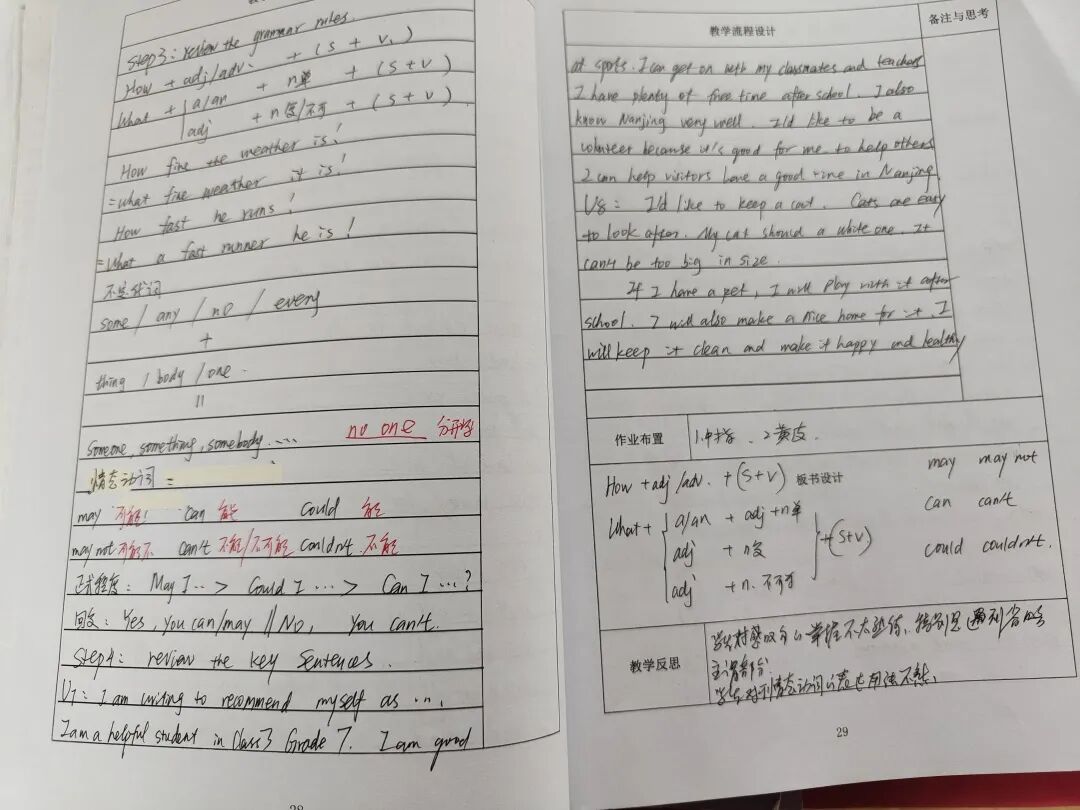 Step3: review the grammar rules.
How + adj/adv. + (S + V.)
What + a/an + n单 + (S + V)
adj + n复/不可 + (S + V).
How fine the weather is!
=What fine weather it is!
How fast he runs!
=What a fast runner he is!
不定代词
some / any / no / every
+
thing / body / one.
=
Someone, something, somebody.... no one 分开写
情态动词=
may 可能 can 能 could 能
may not 可能不 can't 不能/不可能 couldn't 不能
正式程度: May I ... > Could I ... > Can I ...?
回答: Yes, you can/may // No, you can't.
Step4: review the key sentences.
U7: I am writing to recommend myself as ...
I am a helpful student in Class3 Grade 7. I am good
28
教学流程设计
备注与思考
at sports. I can get on with my classmates and teachers
I have plenty of free time after school. I also
know Nanjing very well. I'd like to be a
volunteer because it's good for me to help others
I can help visitors have a good time in Nanjing.
U8: I'd like to keep a cat. Cats are easy
to look after. My cat should a white one. It
can't be too big in size.
If I have a pet, I will play with it after
school. I will also make a nice home for it. I
will keep it clean and make it happy and healthy
作业布置
1. 2.
How + adj/adv. + (S+V) 板书设计
What + a/an + adj + n单
adj + n复 +(S+V)
adj + n. 不可
may may not
can can't
could couldn't.
教学反思
主谓部分.
29